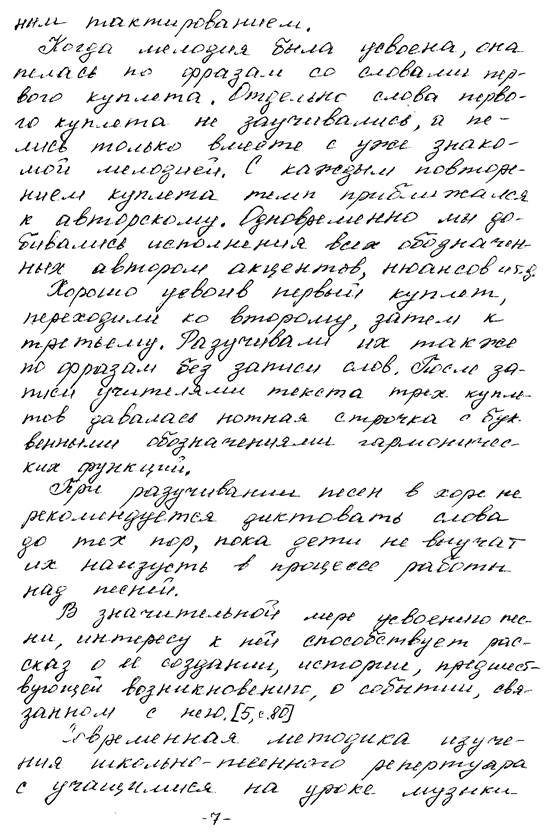 ним тактированием.
Когда мелодия была усвоена, она
пелась по фразам со словами пер-
вого куплета. Отдельно слова перво-
го куплета не заучивались, а пе-
лись только вместе с уже знако-
мой мелодией. С каждым повторе-
нием куплета темп приближался
к авторскому. Одновременно мы до-
бивались исполнения всех обозначен-
ных автором акцентов, нюансов и т.д.
Хорошо усвоив первый куплет,
переходили ко второму, затем к
третьему. Разучивали их также
по фразам без записи слов. После за-
писи учителями текста трех купле-
тов давалась нотная строчка с бук-
венными обозначениями гармоничес-
ких функций.
При разучивании песен в хоре не
рекомендуется диктовать слова
до тех пор, пока дети не выучат
их наизусть в процессе работы
над песней.
В значительной мере усвоению пес-
ни, интересу к ней способствует рас-
сказ о ее создании, истории, предшест-
вующей возникновению, о событии, свя-
занном с нею. [5, с.80]
Современная методика изуче-
ния школьно-песенного репертуара
с учащимися на уроке музыки
-7-